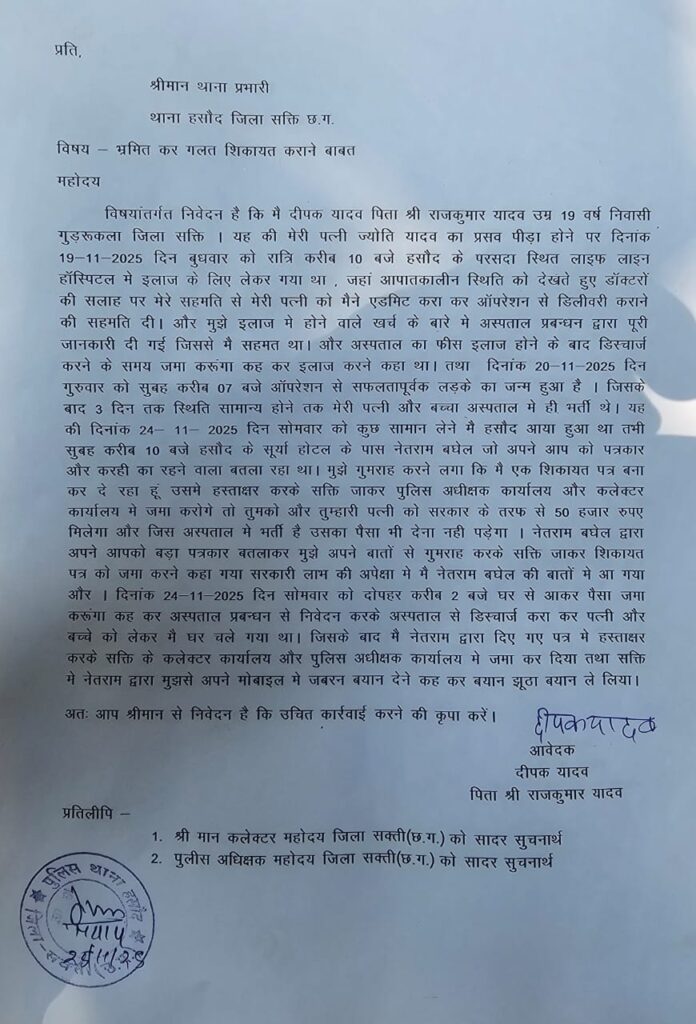 प्रति,
श्रीमान थाना प्रभारी
थाना हसौद जिला सक्ति छ.ग.
विषय – भ्रमित कर गलत शिकायत कराने बाबत
महोदय
विषयांतर्गत निवेदन है कि मै दीपक यादव पिता श्री राजकुमार यादव उम्र 19 वर्ष निवासी
गुड़रूकला जिला सक्ति । यह की मेरी पत्नी ज्योति यादव का प्रसव पीड़ा होने पर दिनांक
19-11-2025 दिन बुधवार को रात्रि करीब 10 बजे हसौद के परसदा स्थित लाइफ लाइन
हॉस्पिटल मे इलाज के लिए लेकर गया था , जहां आपातकालीन स्थिति को देखते हुए डॉक्टरों
की सलाह पर मेरे सहमति से मेरी पत्नी को मैने एडमिट करा कर ऑपरेशन से डिलीवरी कराने
की सहमति दी। और मुझे इलाज मे होने वाले खर्च के बारे मे अस्पताल प्रबन्धन द्वारा पूरी
जानकारी दी गई जिससे मै सहमत था। और अस्पताल का फीस इलाज होने के बाद डिस्चार्ज
करने के समय जमा करूंगा कह कर इलाज करने कहा था। तथा दिनांक 20-11-2025 दिन
गुरुवार को सुबह करीब 07 बजे ऑपरेशन से सफलतापूर्वक लड़के का जन्म हुआ है । जिसके
बाद 3 दिन तक स्थिति सामान्य होने तक मेरी पत्नी और बच्चा अस्पताल मे ही भर्ती थे। यह
की दिनांक 24– 11– 2025 दिन सोमवार को कुछ सामान लेने मै हसौद आया हुआ था तभी
सुबह करीब 10 बजे हसौद के सूर्या होटल के पास नेतराम बघेल जो अपने आप को पत्रकार
और करही का रहने वाला बतला रहा था। मुझे गुमराह करने लगा कि मै एक शिकायत पत्र बना
कर दे रहा हूं उसमे हस्ताक्षर करके सक्ति जाकर पुलिस अधीक्षक कार्यालय और कलेक्टर
कार्यालय मे जमा करोगे तो तुमको और तुम्हारी पत्नी को सरकार के तरफ से 50 हजार रुपए
मिलेगा और जिस अस्पताल मे भर्ती है उसका पैसा भी देना नही पड़ेगा । नेतराम बघेल द्वारा
अपने आपको बड़ा पत्रकार बतलाकर मुझे अपने बातों से गुमराह करके सक्ति जाकर शिकायत
पत्र को जमा करने कहा गया सरकारी लाभ की अपेक्षा मे मै नेतराम बघेल की बातों मे आ गया
और । दिनांक 24-11-2025 दिन सोमवार को दोपहर करीब 2 बजे घर से आकर पैसा जमा
करूंगा कह कर अस्पताल प्रबन्धन से निवेदन करके अस्पताल से डिस्चार्ज करा कर पत्नी और
बच्चे को लेकर मै घर चले गया था। जिसके बाद मै नेतराम द्वारा दिए गए पत्र मे हस्ताक्षर
करके सक्ति के कलेक्टर कार्यालय और पुलिस अधीक्षक कार्यालय मे जमा कर दिया तथा सक्ति
मे नेतराम द्वारा मुझसे अपने मोबाइल मे जबरन बयान देने कह कर बयान झूठा बयान ले लिया।
अतः आप श्रीमान से निवेदन है कि उचित कार्रवाई करने की कृपा करें।
दीपक यादव
आवेदक
दीपक यादव
पिता श्री राजकुमार यादव
प्रतिलीपि –
1. श्री मान कलेक्टर महोदय जिला सक्ती(छ.ग.) को सादर सुचनार्थ
2. पुलीस अधिक्षक महोदय जिला सक्ती(छ.ग.) को सादर सुचनार्थ
पुलिस थाना हसौद